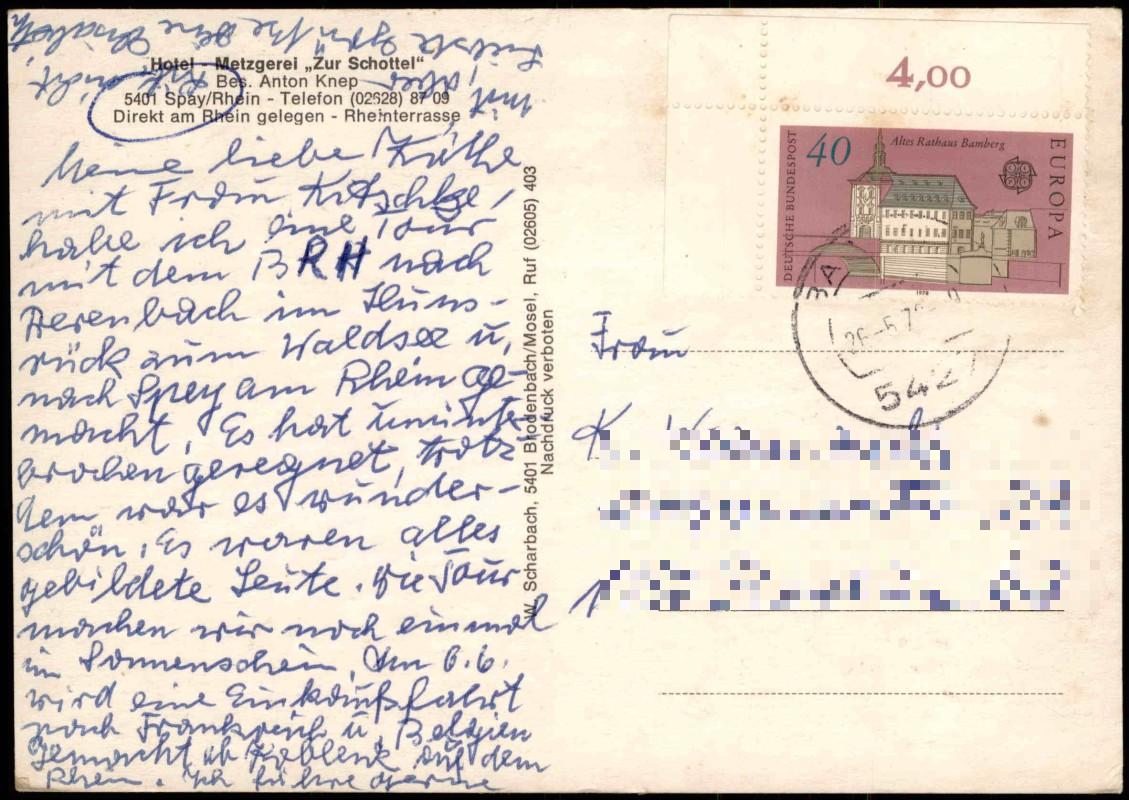 Hotel - Metzgerei „Zur Schottel"
Bes. Anton Knep
5401 Spay/Rhein - Telefon (02628) 87 09
Direkt am Rhein gelegen - Rheinterrasse
Meine liebe Käthe
mit Frau Kotschke,
habe ich eine Tour
mit dem BRH nach
im Huns-
rück zum Waldsee u,
nach Spey am Rhein ge-
macht, Es hat ununter-
brochen geregnet, trotz
dem war es wunder-
schön, Es waren alles
gebildete Leute. Die Tour
machen wir noch einmal
im Sonnenschein, Am 6.6.
wird eine Einkaufsfahrt
nach Frankreich u, Belgien
gemacht ab Koblenz auf dem
Rhein. Ich führe gerne
mit, aber
nicht,
W. Scharbach, 5401 Brodenbach/Mosel, Ruf (02605) 403
Nachdruck verboten
4,00
DEUTSCHE BUNDESPOST
40
Altes Rathaus Bamberg
EUROPA
1978
5427
Frau
K